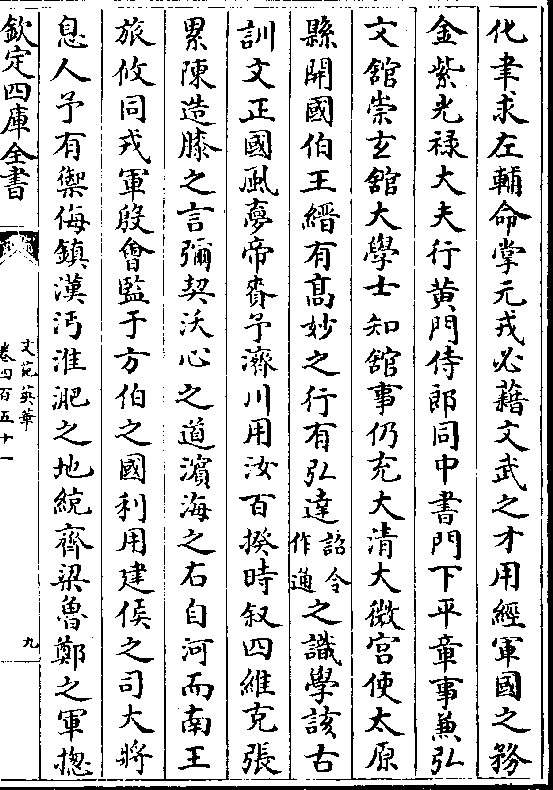 化聿求左輔命掌元戎必藉文武之才用經軍國之務
金紫光禄大夫行黄門侍郎同中書門下平章事兼弘
文舘崇玄舘大學士知舘事仍充大清大微宫使太原
縣開國伯王縉有髙妙之行有弘達詔令作通之識學該古
訓文正國風夢帝賚予濟川用汝百揆時叙四維克張
累陳造膝之言彌契沃心之道濵海之右自河而南王
旅攸同戎軍殷㑹監于方伯之國利用建侯之司大將
息人予有禦侮鎮漢沔淮淝之地統齊梁魯鄭之軍揔
欽定四庫全書
文苑英華
卷四百五十一
九